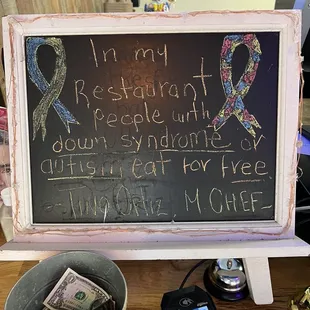 In my
Restaurant
people with
down syndrome or
autism, eat for free.
-- Tina Ortiz M CHEF -